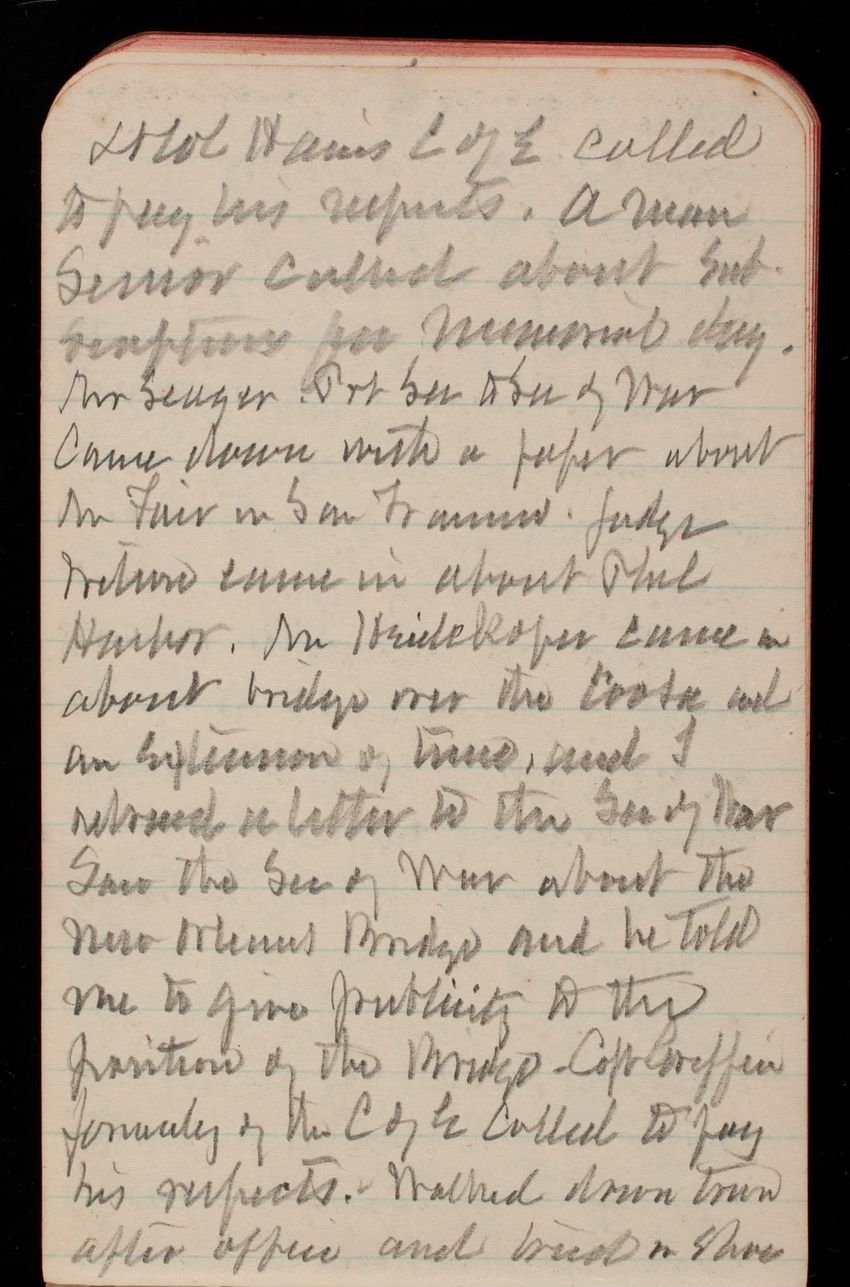 Lt Col Hains C of E called
to pay his respects. A man
Senior called about Sub-
scriptions for Memorial day.
Mr Seager Prt Sec to Sec of War
Came down with a paper about
Mr Fair in San Francisco. Judge
came in about Phil
Harbor. Mr Heidekoper came in
about bridge over the Coosa and
an Extension of time, and I
a letter to the Sec of War
Saw the Sec of War about the
New Orleans Bridge and he told
me to give publicity to the
position of the Bridge - Capt Griffin
formerly of the C of E Called to pay
his respects. - Walked down town
after office and tried on Shoe